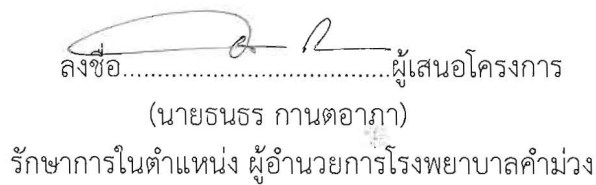 ลงชื่อ........................................ผู้เสนอโครงการ
(นายธนธร กานตอาภา)
รักษาการในตำแหน่ง ผู้อำนวยการโรงพยาบาลคำม่วง